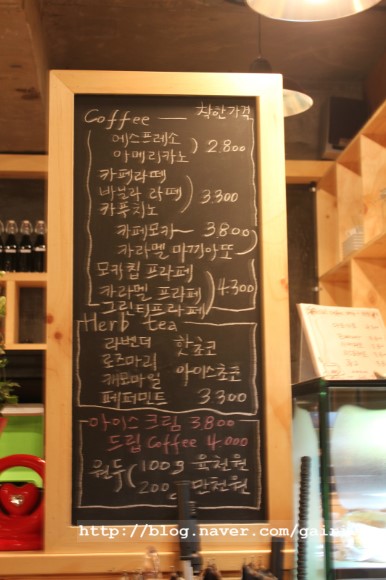 Coffee — 착한가격
에스프레소
아메리카노 ) 2.800
카페라떼
바닐라 라떼 3.300
카푸치노
카페모카 — 3.800
카라멜 마끼아또
모카칩 프라페
카라멜 프라페 4.300
그린티프라페
Herb tea
라벤더 핫초코
로즈마리
캐모마일 아이스초코
페퍼민트 3.300
아이스크림 3.800
드립 Coffee 4.000
원두 ( 100g 육천원
200g 만천원
http://blog.naver.com/